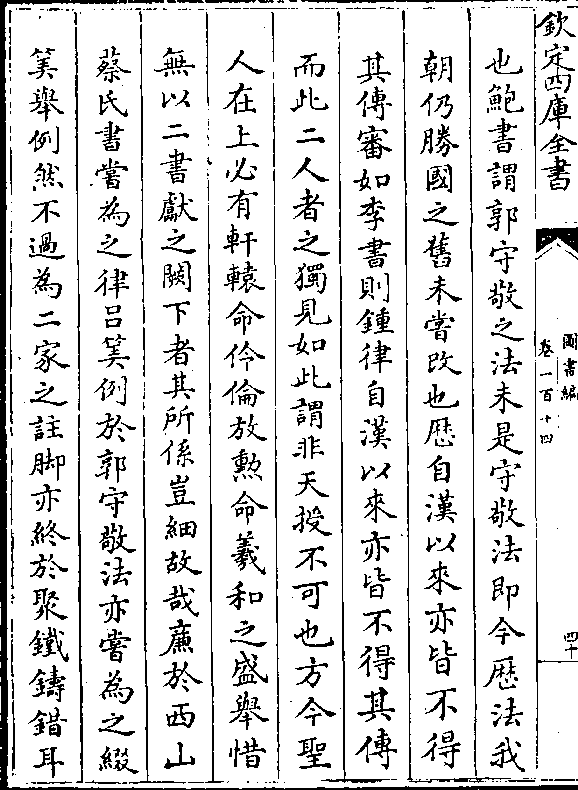 欽定四庫全書
圖書編
卷一百十四
四十
也鮑書謂郭守敬之法未是守敬法即今厯法我
朝仍勝國之舊未嘗改也厯自漢以來亦皆不得
其傳審如李書則鍾律自漢以來亦皆不得其傳
而此二人者之獨見如此謂非天授不可也方今聖
人在上必有軒轅命伶倫放勲命羲和之盛舉惜
無以二書獻之闕下者其所係豈細故哉廉於西山
蔡氏書嘗為之律吕筭例於郭守敬法亦嘗為之綴
筭舉例然不過為二家之註脚亦終於聚鐵鑄錯耳